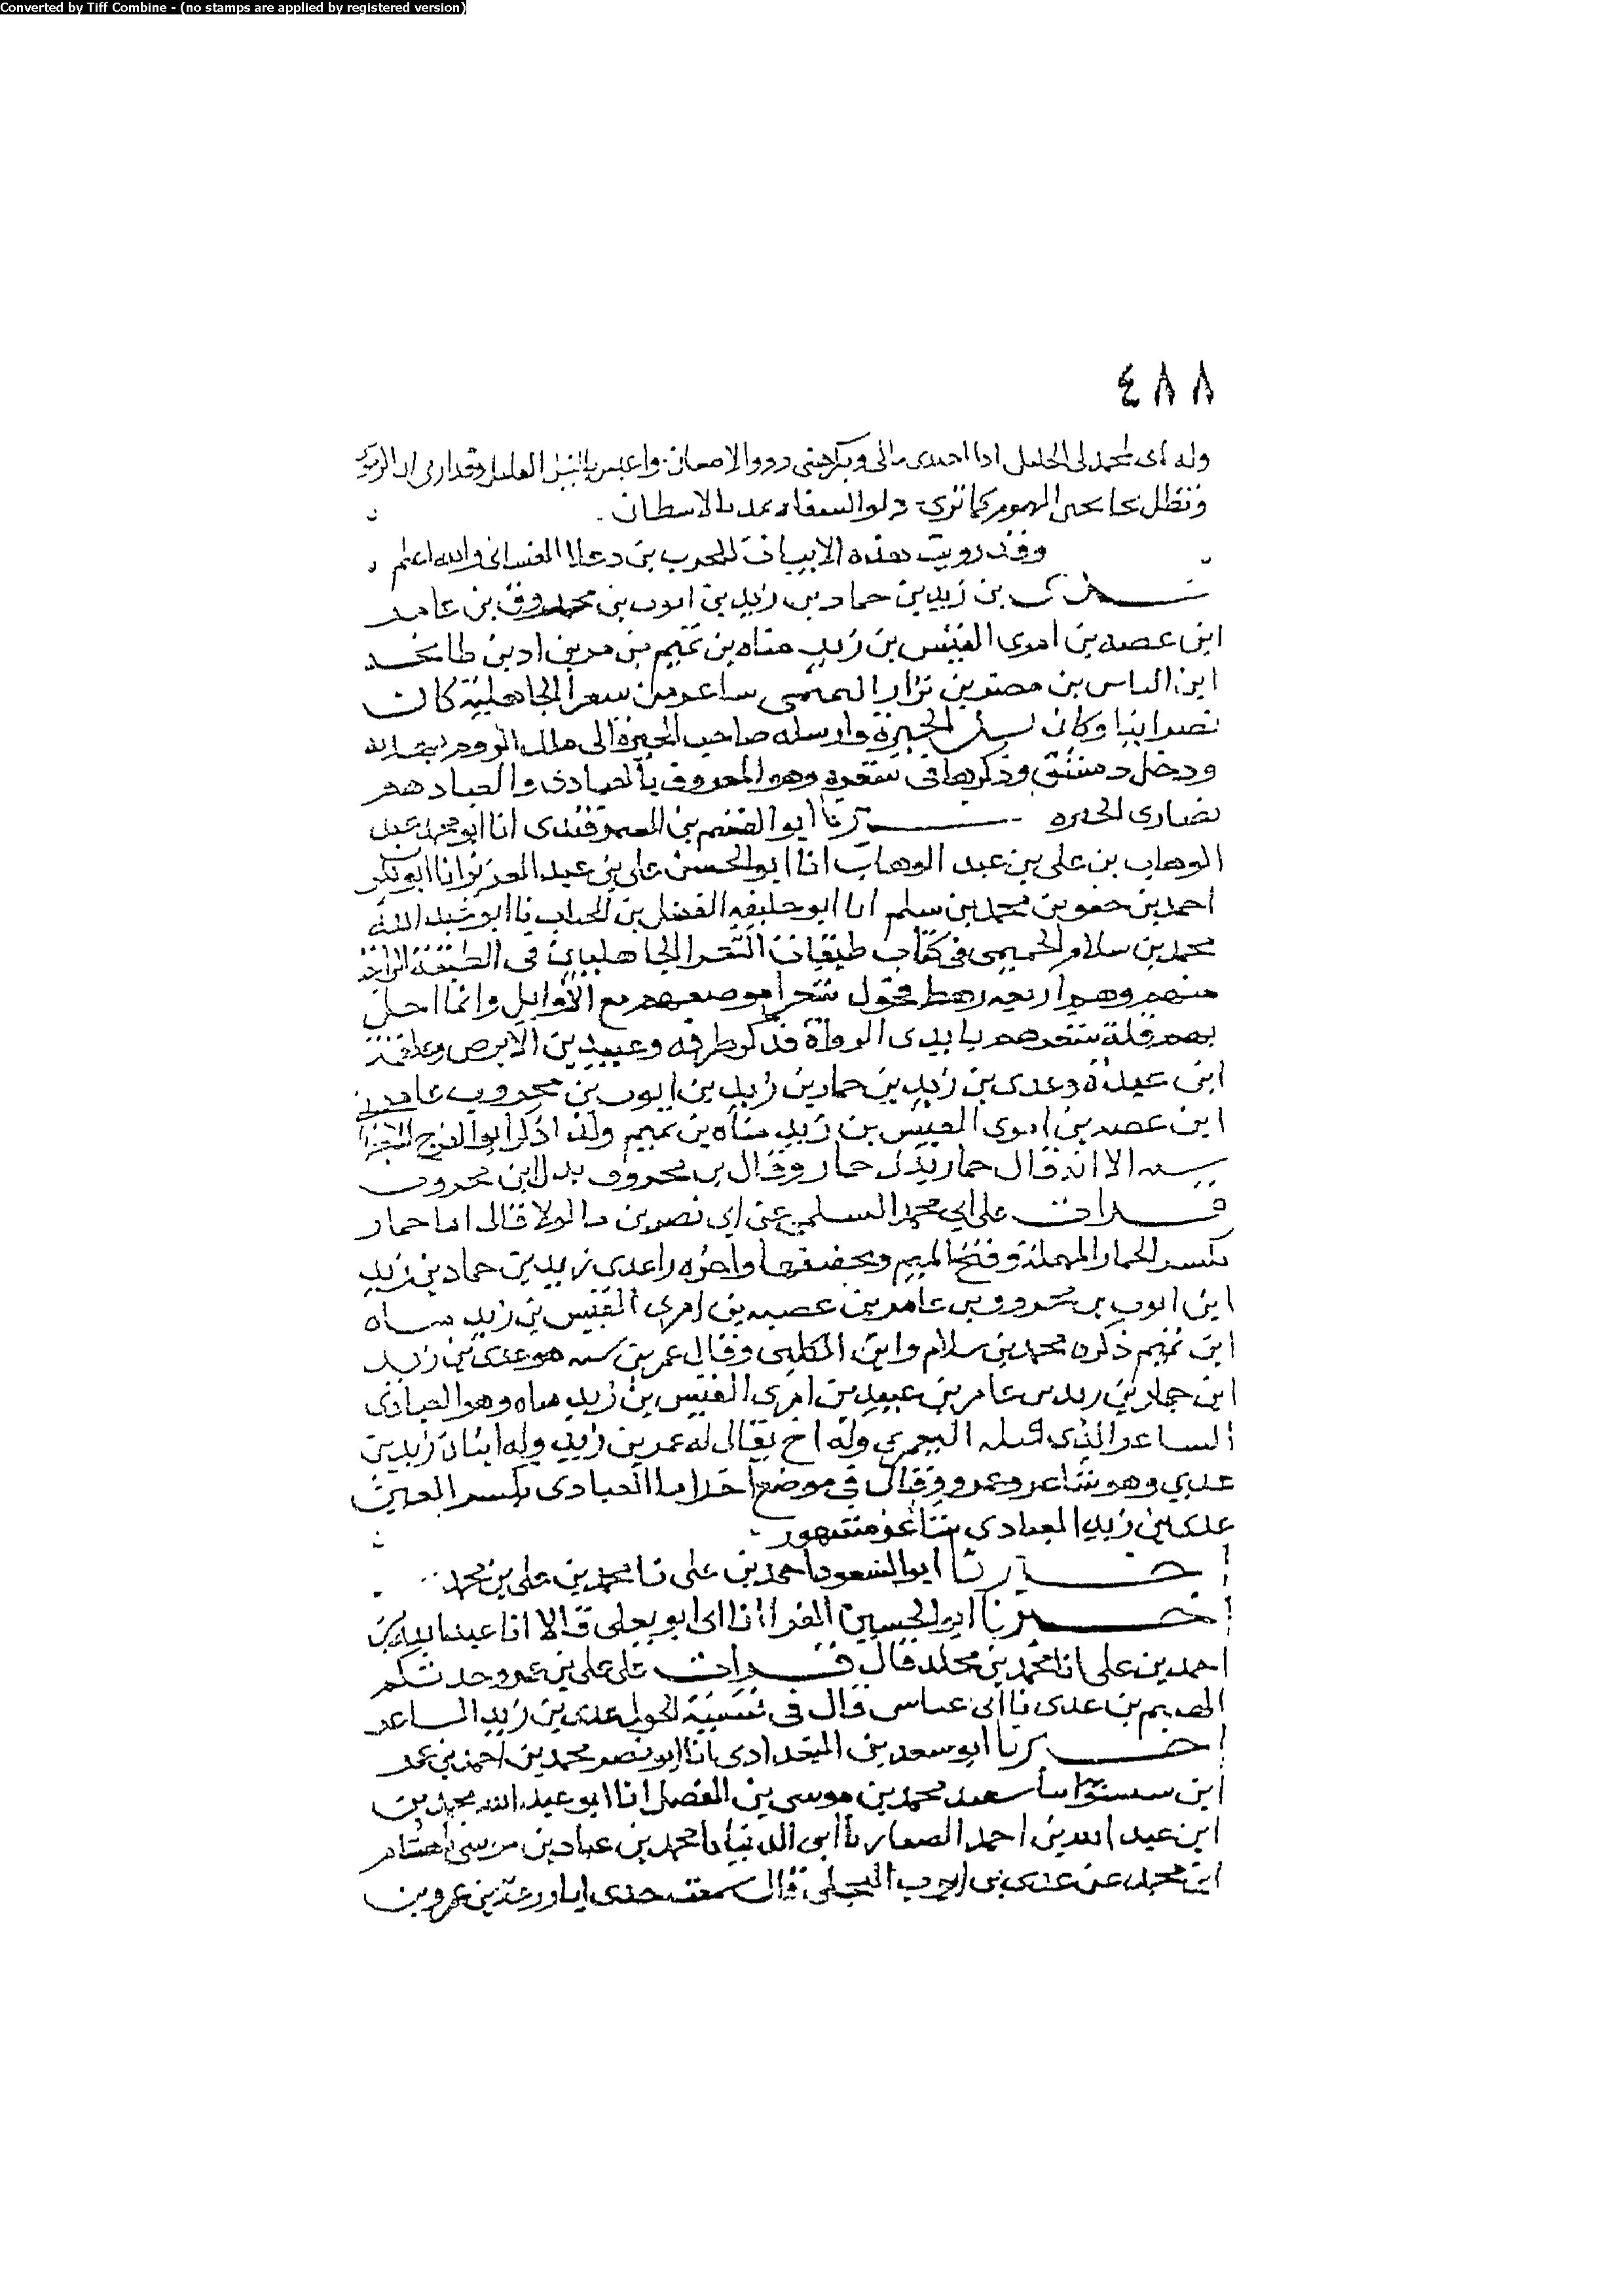 Converted by Tiff Combine - (no stamps are applied by registered version)
٤٨٨
وله
فنظل كما ترى دلو السقاه تمد بالاسطان
وقد رويت هذه الابيات للحرب بن دعلا الغساني والله اعلم
عدى بن زيد بن حماد بن زيد بن ايوب بن محدوف بن عامر
ابن عصيه بن امرى القيس بن زيد مناه بن تميم بن مر بن اد بن طابخه
ابن الياس بن مضر بن نزار التميمى ساعر من سعرا الجاهلية كان
نصرانيا وكان الحيرة وارسله صاحب الحيرة الى ملك الروم
ودخل دمشق وذكرها فى شعره وهو المعروف بالعبادى والعباد هم
نصارى الحيره اخبرنا ابو القسم بن السمرقندى انا ابو محمد عبد
الوهاب بن على بن عبد الوهاب انا ابو الحسن على بن عبد العزيز انا ابو بكر
احمد بن جعفر بن محمد بن سلم انا ابو خليفه الفضل بن الحباب نا ابو عبد الله
محمد بن سلام الجمحى فى كتاب طبقات الشعرا الجاهليين فى الطبقة الرابعة
منهم وهم اربعه رهط فحول شعرا موضعهم مع الاوايل وانما اخل
بهم قلة شعرهم بايدى الرواة فذكر طرفه وعبيد بن الابرص وعلقمة
ابن عبدة وعدى بن زيد بن حمار بن زيد بن ايوب بن محروب عامر بن
ابن عصيه بن امرى القيس بن زيد مناه بن تميم وكذا ذكر ابو الفرج
الا انه قال حماد بدل حمار وقال بن محروف بدل ابن محروب
قرات على ابى محمد السلمى عن ابى نصر بن ماكولا قال اما حمار
بكسر الحا المهملة وفتح الميم وتخفيفها واخره را عدى بن زيد بن حماد بن زيد
ابن ايوب بن محروب بن عامر بن عصيه بن امرى القيس بن زيد مناه
ابن تميم ذكره محمد بن سلام وابن الكلبى وقال عمر بن سبه هو عدى بن زيد
ابن حماد بن زيد بن عامر بن عبيد بن امرى القيس بن زيد مناه وهو العبادى
الساعر الذى وله اخ يقال له عمر بن زيد وله ابنان زيد بن
عدي وهو شاعر وعمرو وقال فى موضع اخر اما العبادى بكسر العين
عدى بن زيد العبادى شاعر مشهور
اخبرنا ابو السعود احمد بن على نا محمد بن على بن محمد
اخبرنا ابو الحسين الفرا انا ابى ابو يعلى قالا انا عبيد الله بن
احمد بن على انا محمد بن مخلد قال قرات على على بن عمرو حدثكم
الهيثم بن عدى نا ابن عباس قال فى تسمية الحول عدى بن زيد الساعر
اخبرنا ابو سعد بن البغدادى انا ابو نصر محمد بن احمد بن عمر
ابن سعيد محمد بن موسى بن الفضل انا ابو عبد الله محمد بن
ابن عبد الله بن احمد الصفار نا ابن ابى الدنيا نا محمد بن عباد بن موسى نا هشام
ابن محمد عن عدى بن ايوب البجلى قال سمعت جدى ابا زرعة بن عمرو بن